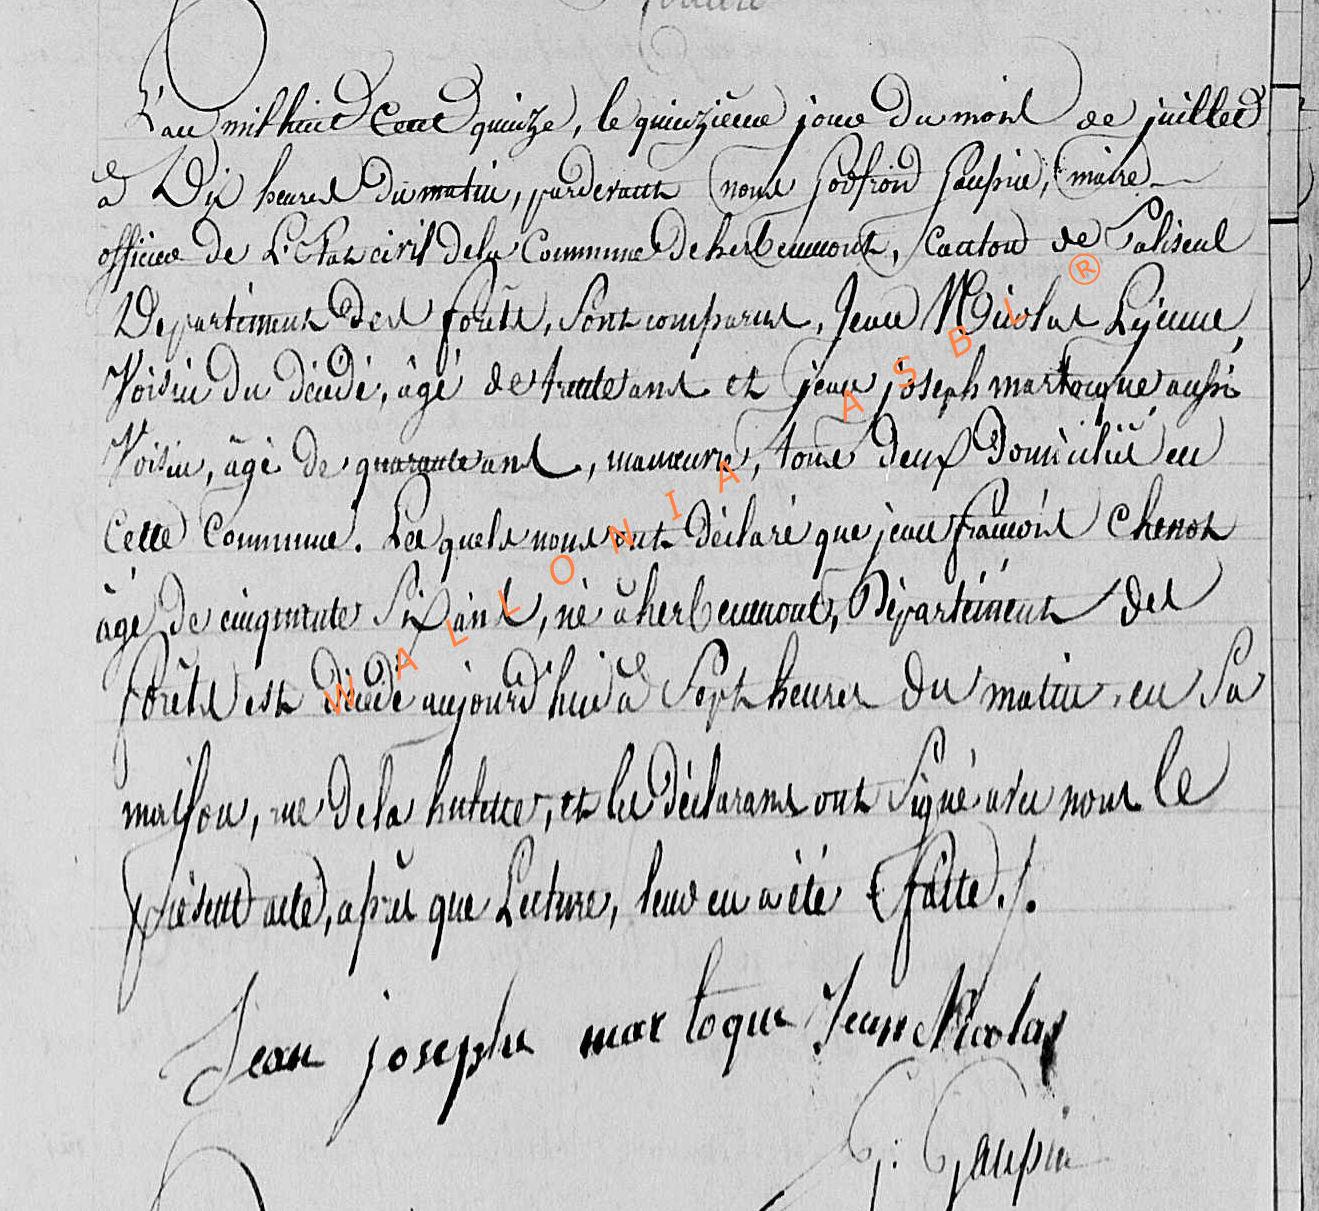 L'an mil huit Cent quinze, le quinzième jour du mois de juillet
à Dix heures du matin, pardevant nous Godfroid Gaupin, maire
officier de L'Etat civil dela Commune de herbeumont, Canton de Paliseul
Département des forêts, sont comparus, Jean Nicolas Lejeune,
Voisin du décédé, âgé de trente ans et jean joseph martoque, aussi
Voisin, âgé de quarante ans, manœuvre, tous deux Domicilié en
Cette Commune. Lesquels nous ont Déclaré que jean francois Chenot
âgé de cinquante Six ans, né à herbeumont, Département des
forêts est décédé aujourd'hui à Sept heures du matin, en Sa
maison, rue dela hutette, et les déclarans ont Signé avec nous le
présent acte, après que Lecture, leur en a été faitte./.
Jean joseph martoque Jean Nicolas
G: Gaupin
WALLONIA ASBL ®